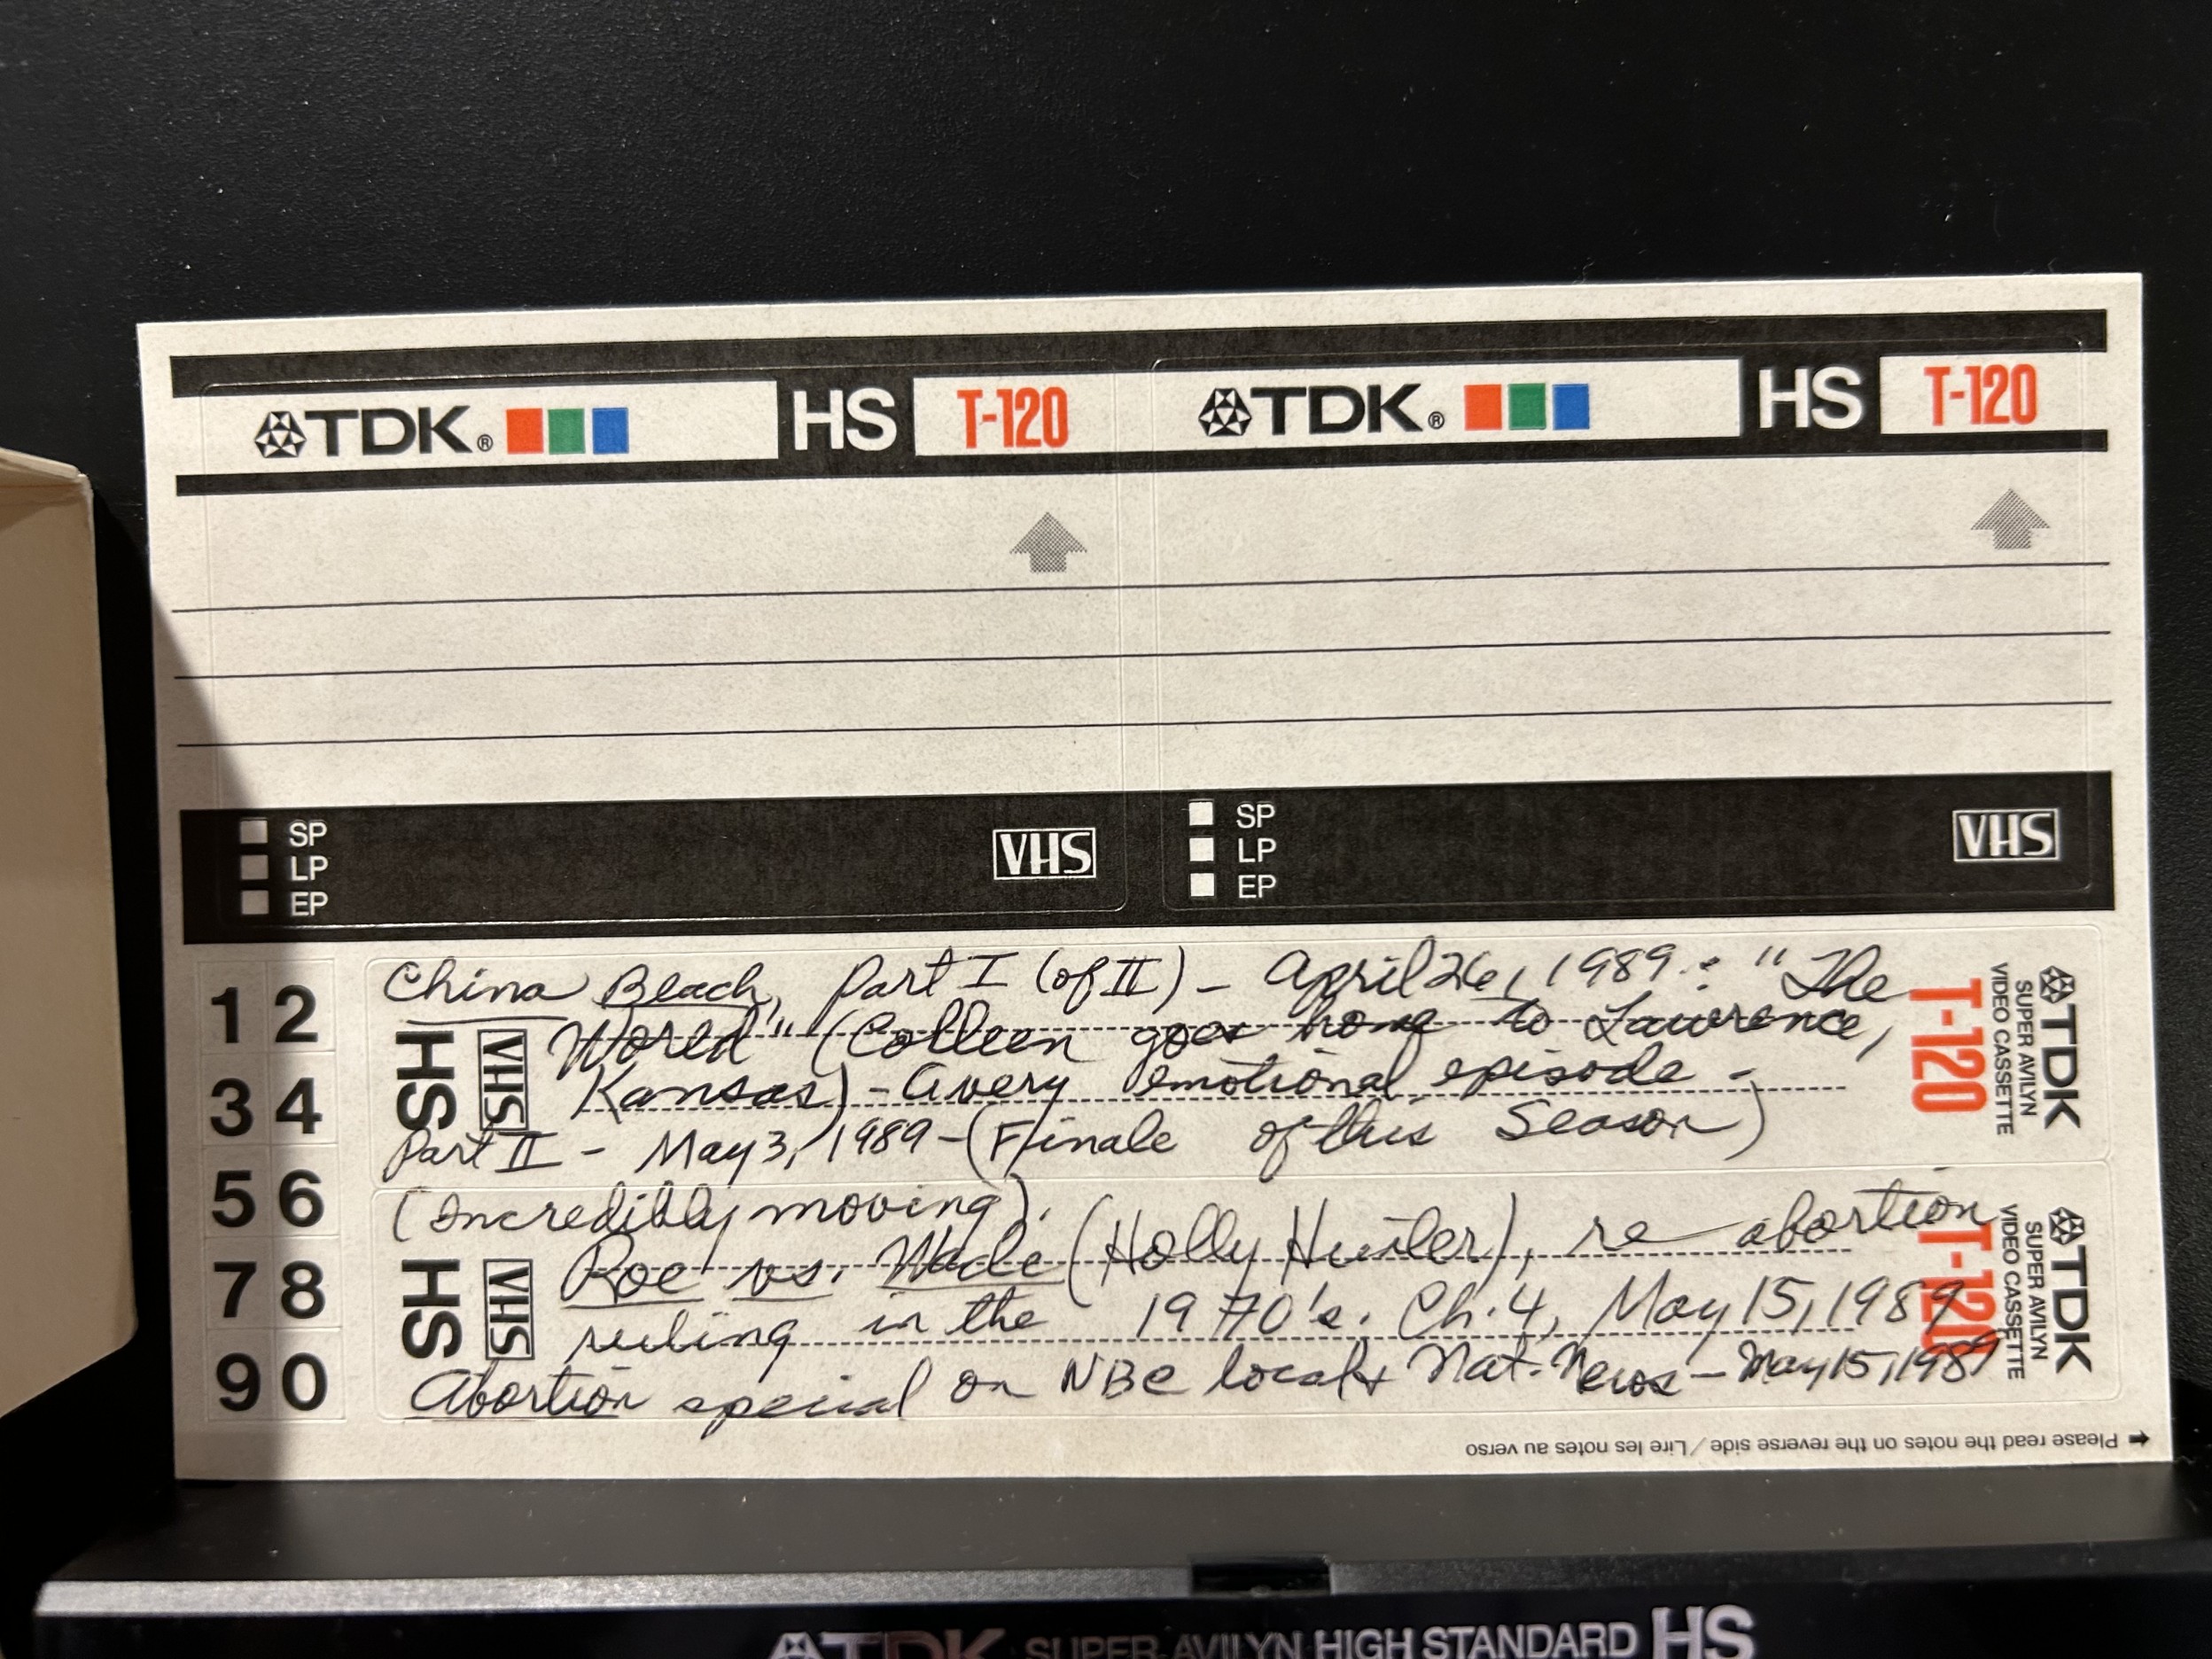 TDK® HS T-120 TDK® HS T-120
SP SP
LP VHS LP VHS
EP EP
1 2
3 4
5 6
7 8
9 0
China Beach, Part I (of II) - April 26, 1989: "The
World" (Colleen goes home to Lawrence,
Kansas) - A very emotional episode -
Part II - May 3, 1989 - (Finale of this Season)
HS VHS
T-120
TDK
SUPER AVILYN
VIDEO CASSETTE
(Incredibly moving).
Roe vs. Wade (Holly Hunter), re abortion
ruling in the 1970's. Ch. 4, May 15, 1989
Abortion special on NBC local + Nat. News - May 15, 1989
HS VHS
T-120
TDK
SUPER AVILYN
VIDEO CASSETTE
Please read the notes on the reverse side/Lire les notes au verso
TDK SUPER AVILYN HIGH STANDARD HS